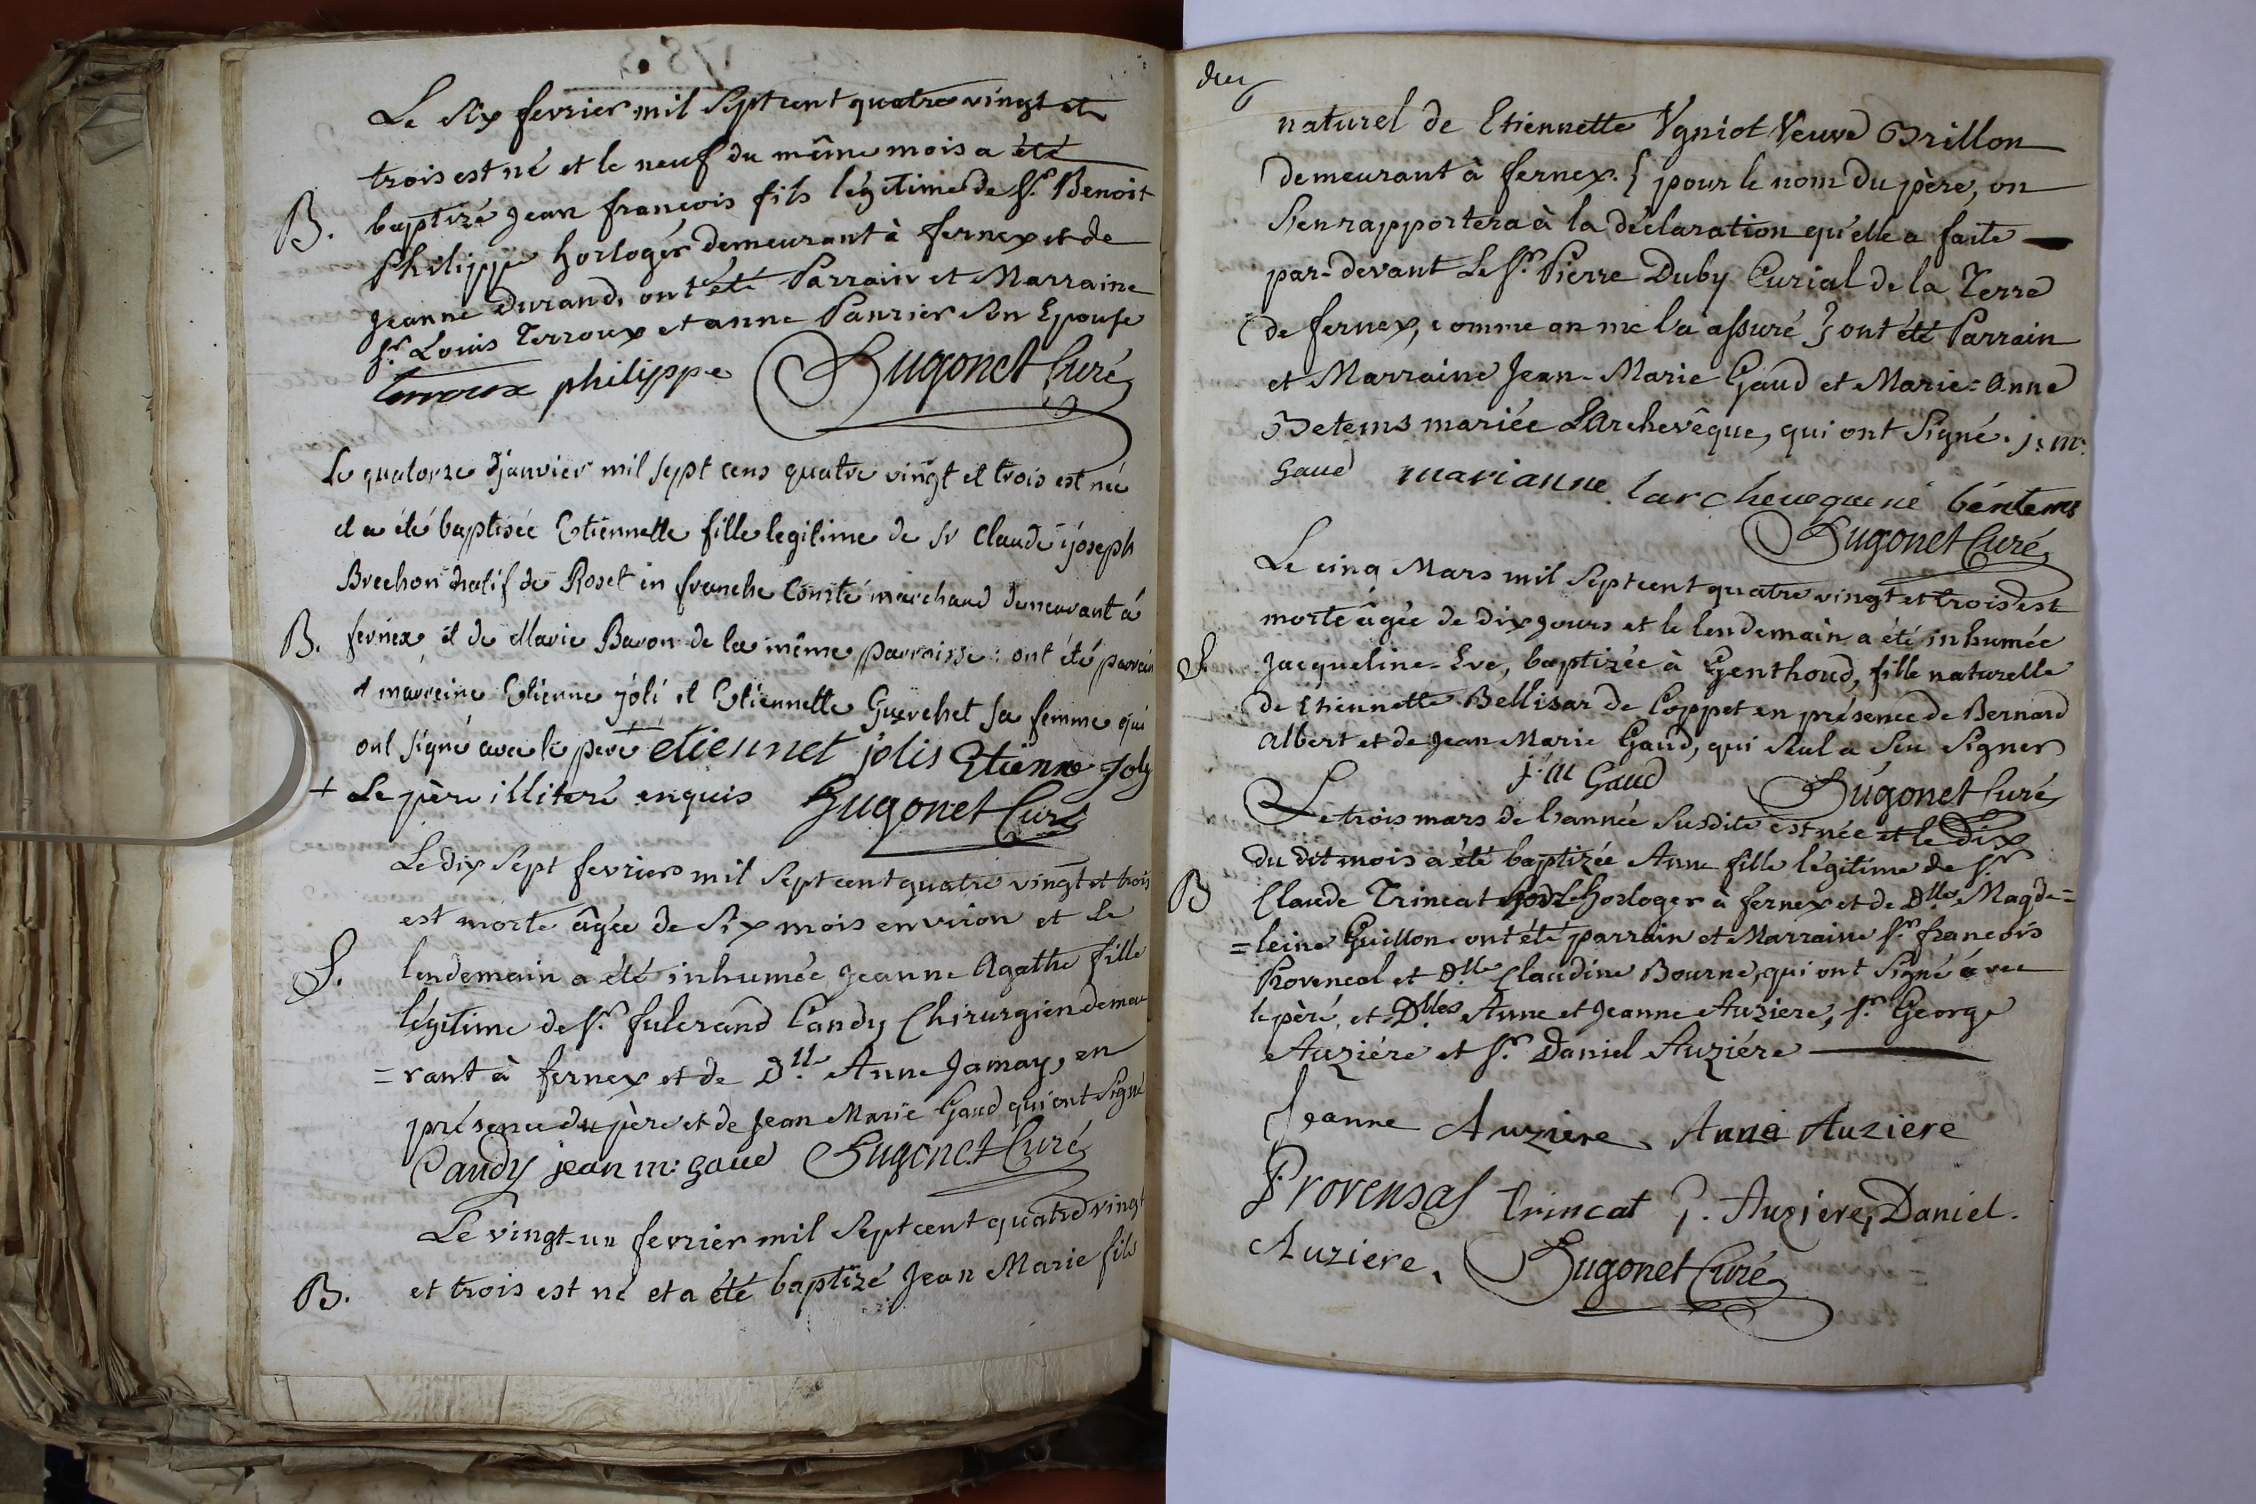 Le Six fevrier mil Sept cent quatre vingt et
trois est né et le neuf du même mois a été
B. baptizé Jean francois fils légitime de Sr. Benoit
Philippe horloger demeurant à fernex et de
Jeanne Durand, ont été Parrain et Marraine
Sr. Louis Terroux et anne Panrier son Epouse
terroux philippe Hugonet Curé
Le quatorze Janvier mil sept cens quatre vingt et trois est née
et a été baptisée Etiennette fille legitime de Sr Claude joseph
Brechon natif de Roset en franche Comté marchand demeurant à
B. fernex, et de Marie Baron de la même parroisse : ont été parrain
et marreine Etienne joli et Etiennette Guerchet sa femme qui
ont signé avec le pere + etiennet jolis Etienne Joly
+ Le père illiteré enquis Hugonet Curé
Le dix Sept fevrier mil Sept cent quatre vingt et trois
est morte âgée de Six mois environ et Le
S. lendemain a été inhumée Jeanne Agathe fille
légitime de Sr. fulcrand Candy Chirurgien demeu
=rant à fernex et de Dlle. Anne Jamay, en
présence du père et de Jean Marie Gaud qui ont Signé
Candy jean m: gaud Hugonet Curé
Le vingt-un fevrier mil Sept cent quatre vingt
B. et trois est né et a été baptizé Jean Marie fils
naturel de Etiennette Vgniot Veuve Brillon
demeurant à fernex. { pour le nom du père, on
S'en rapportera à la déclaration qu'elle a faite
par-devant Le Sr. Pierre Duby Curial de la Terre
de fernex, comme on me l'a assuré } ont été Parrain
et Marraine Jean-Marie Gaud et Marie=Anne
Betems mariée L'Archevêque, qui ont Signé. j: m:
Gaud marianne larcheveque né béntems
Hugonet Curé
Le cinq Mars mil Sept cent quatre vingt et trois est
morte âgée de dix jours et le lendemain a été inhumée
S. Jacqueline-Eve, baptizée à Genthoud, fille naturelle
de Etiennette Bellisar de Coppet en présence de Bernard
Albert et de Jean Marie Gaud, qui Seul a Seu Signer
j: m Gaud Hugonet Curé
Le trois mars de l'année Susdite est née et le Dix
du dit mois a été baptizée Anne fille légitime de Sr
B Claude Trincat horloger à fernex et de Dlle. Magde=
=leine Guillon. ont été parrain et Marraine Sr. francois
Provencal et Dlle Claudine Bourne, qui ont Signé avec
le père, et Dlles Anne et Jeanne Auziere, Sr. George
Auziére et Sr. Daniel Auziére
Jeanne Auziere Anne Auziere
Provensal Trincat G. Auziere, Daniel.
Auziere. Hugonet Curé